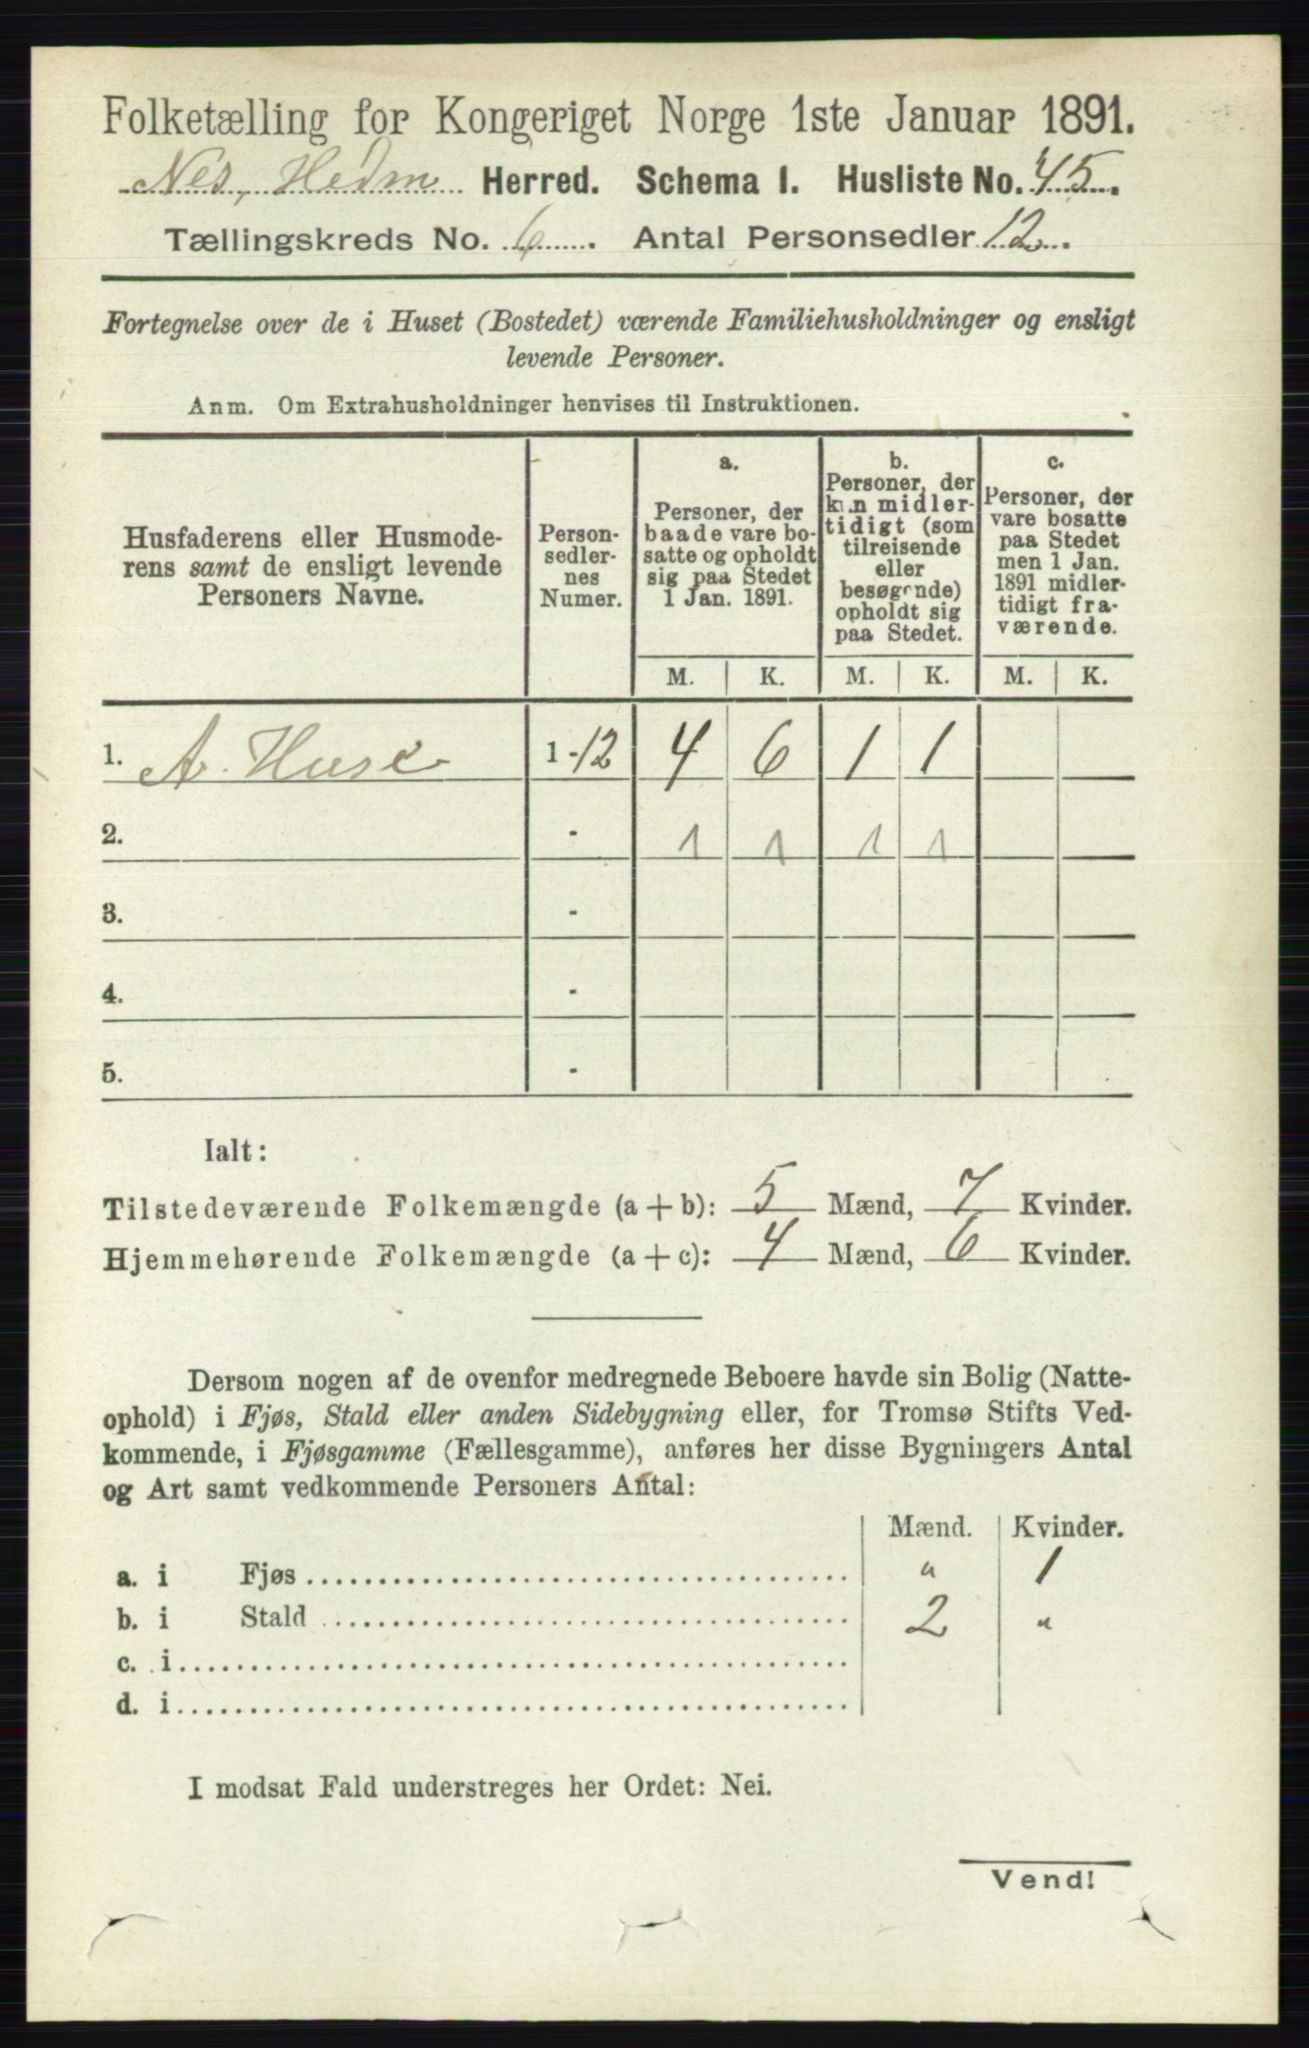 Folketælling for Kongeriget Norge 1ste Januar 1891.
Nes, Hedm Herred. Schema I. Husliste No. 45.
Tællingskreds No. 6. Antal Personsedler 12.
Fortegnelse over de i Huset (Bostedet) værende Familiehusholdninger og ensligt
levende Personer.
Anm. Om Extrahusholdninger henvises til Instruktionen.
Husfaderens eller Husmode-
rens samt de ensligt levende
Personers Navne.
Person-
sedler-
nes
Numer.
a.
Personer, der
baade vare bo-
satte og opholdt
sig paa Stedet
1 Jan. 1891.
b.
Personer, der
kun midler-
tidigt (som
tilreisende
eller
besøgende)
opholdt sig
paa Stedet.
c.
Personer, der
vare bosatte
paa Stedet
men 1 Jan.
1891 midler-
tidigt fra-
værende.
M. K. M. K. M. K.
1. A. Huse 1-12 4 6 1 1
2. - 1 1 1 1
3. -
4. -
5. -
Ialt:
Tilstedeværende Folkemængde (a + b): 5 Mænd, 7 Kvinder.
Hjemmehørende Folkemængde (a + c): 4 Mænd, 6 Kvinder.
Dersom nogen af de ovenfor medregnede Beboere havde sin Bolig (Natte-
ophold) i Fjøs, Stald eller anden Sidebygning eller, for Tromsø Stifts Ved-
kommende, i Fjøsgamme (Fællesgamme), anføres her disse Bygningers Antal
og Art samt vedkommende Personers Antal:
Mænd. Kvinder.
a. i Fjøs " 1
b. i Stald 2 "
c. i
d. i
I modsat Fald understreges her Ordet: Nei.
Vend!